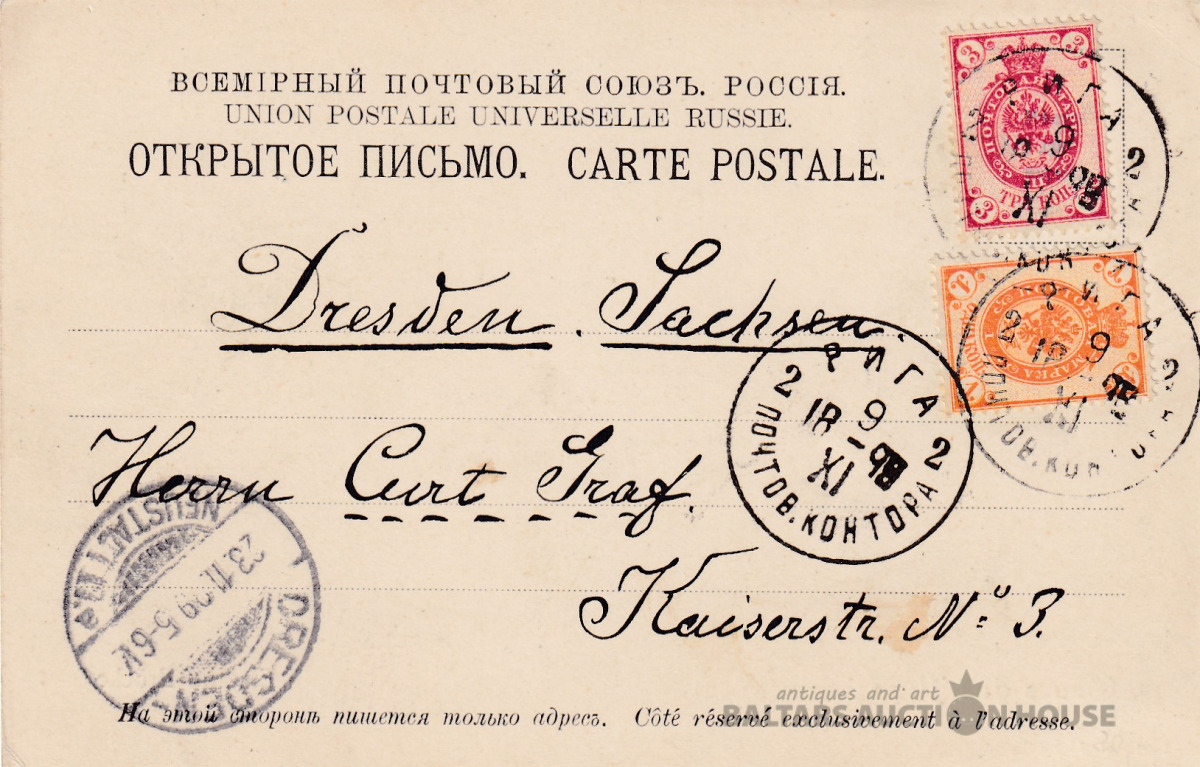 ВСЕМІРНЫЙ ПОЧТОВЫЙ СОЮЗЪ. РОССІЯ.
UNION POSTALE UNIVERSELLE RUSSIE.
ОТКРЫТОЕ ПИСЬМО. CARTE POSTALE.
3 3
ПОЧТОВАЯ МАРКА
3 ТРИ КОП. 3
РИГА 2
9
XI
Dresden. Sachsen.
1 1
МАРКА
РИГА 2
9
XI
РИГА
2 18 9 2
XI
ПОЧТОВ. КОНТОРА
Herrn Curt Graf.
Kaiserstr. No 3.
DRESDEN
23.11.99 5-6V
NEUSTADT 10.a
На этой сторонѣ пишется только адресъ. Côté réservé exclusivement à l'adresse.
antiques and art
BALTARS AUCTION HOUSE